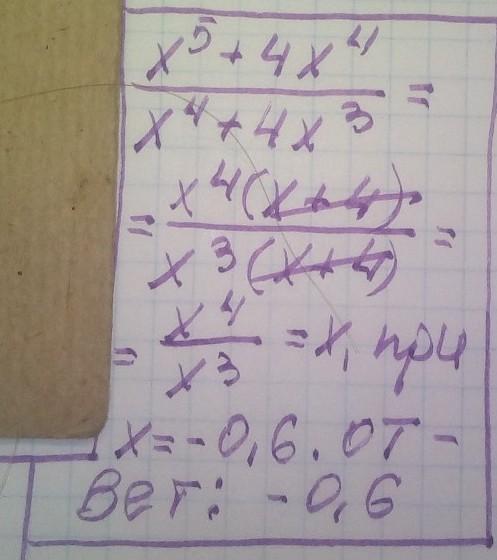 x⁵ + 4x⁴
x⁴ + 4x³ =
= x⁴(x+4)
x³(x+4) =
= x⁴
x³ = x, при
x = -0,6. От -
вет: -0,6